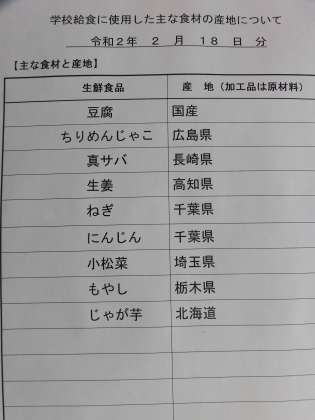 学校給食に使用した主な食材の産地について
令和２年 ２ 月 １８ 日 分
【主な食材と産地】
生鮮食品 産 地（加工品は原材料）
豆腐 国産
ちりめんじゃこ 広島県
真サバ 長崎県
生姜 高知県
ねぎ 千葉県
にんじん 千葉県
小松菜 埼玉県
もやし 栃木県
じゃが芋 北海道